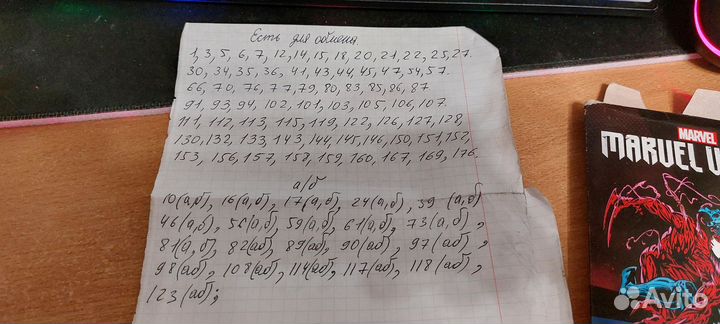 Есть для обмена.
1, 3, 5, 6, 7, 12, 14, 15, 18, 20, 21, 22, 25, 27.
30, 34, 35, 36, 41, 43, 44, 45, 47, 54, 57.
66, 70, 76, 77, 79, 80, 83, 85, 86, 87
91, 93, 94, 102, 101, 103, 105, 106, 107.
111, 112, 113, 115, 119, 122, 126, 127, 128,
130, 132, 133, 143, 144, 145, 146, 150, 151, 152,
153, 156, 157, 158, 159, 160, 167, 169, 176.
а/б
10(а,б), 16(а,б), 17(а,б), 24(а,б), 39 (а,б)
46(а,б), 56(а,б), 59(а,б), 61(а,б), 73(а,б),
81(а,б), 82(аб), 89(аб), 90(аб), 97(аб),
98(аб), 108(аб), 114(аб), 117(аб), 118(аб),
123(аб);
MARVEL
MARVEL
Avito